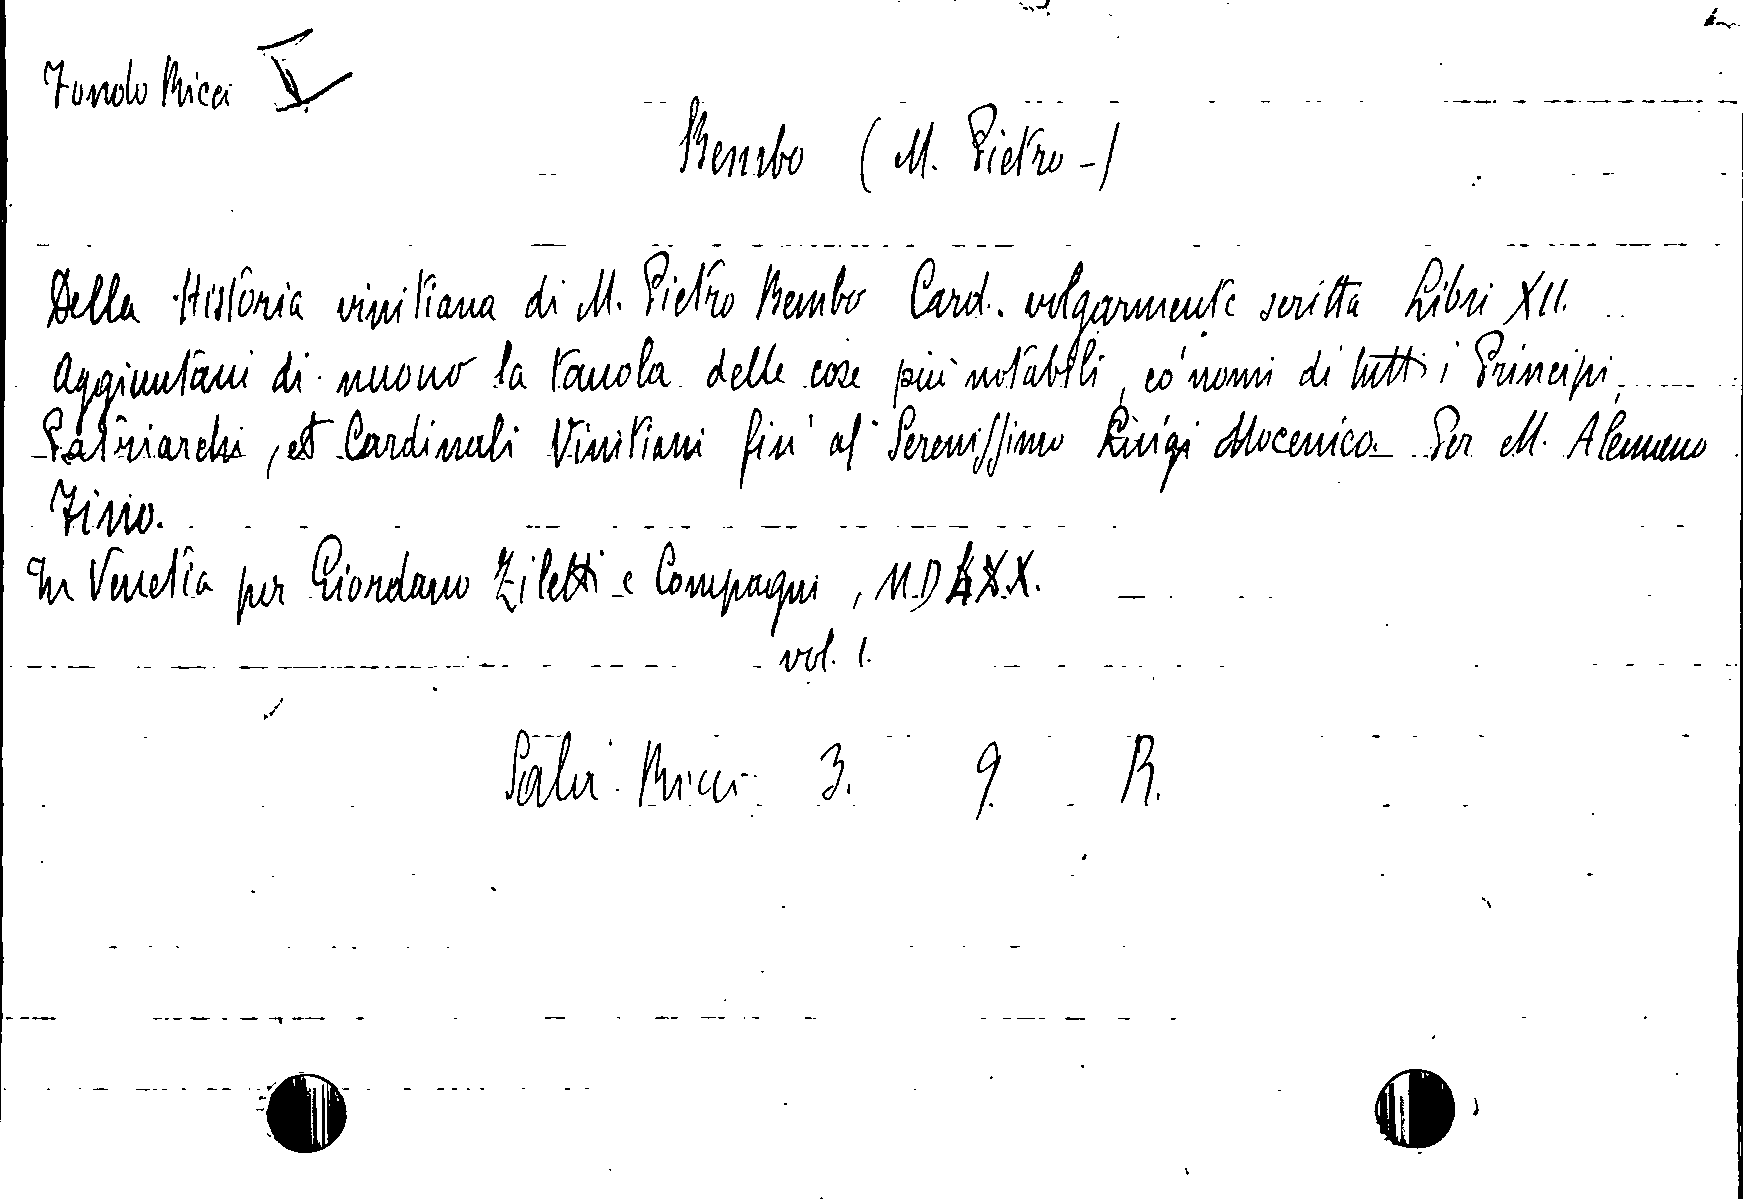 Fondo Ricci I
Bembo (M. Pietro -)
Della Historia vinitiana di M. Pietro Bembo Card. volgarmente scritta Libri XII.
Aggiuntaui di nuouo la tauola delle cose più notabili, co' nomi di tutti i Principi,
Patriarchi, et Cardinali Vinitiani fin' al Serenissimo Luigi Mocenico. Per M. Alemano
Fino.
In Venetia per Giordano Ziletti e Compagni, MDLXX.
vol. 1.
Sala Ricci 3. 9. R.